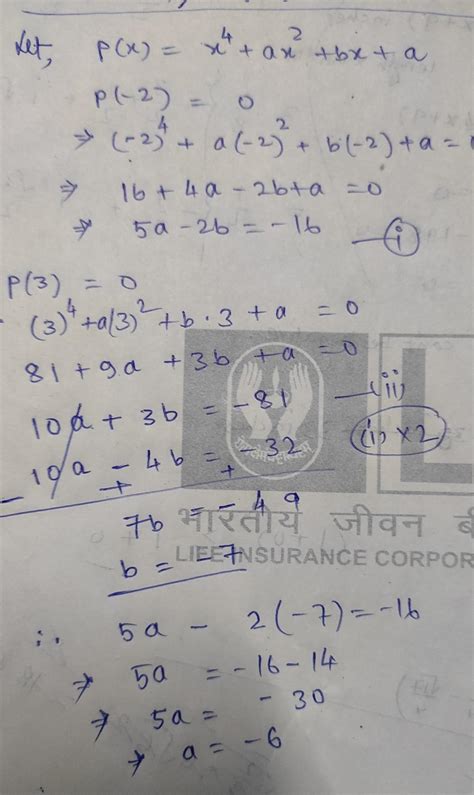 Let, p(x) = x⁴ + ax² + bx + a
p(-2) = 0
⇒ (-2)⁴ + a(-2)² + b(-2) + a =
⇒ 16 + 4a - 2b + a = 0
⇒ 5a - 2b = -16 — (i)
p(3) = 0
(3)⁴ + a(3)² + b·3 + a = 0
81 + 9a + 3b + a = 0
10a + 3b = -81 — (ii)
10a - 4b = -32 (i) ×2
- + +
7b = -49
भारतीय जीवन
b = -7
LIFE INSURANCE CORPOR
∴ 5a - 2(-7) = -16
⇒ 5a = -16 - 14
⇒ 5a = -30
⇒ a = -6